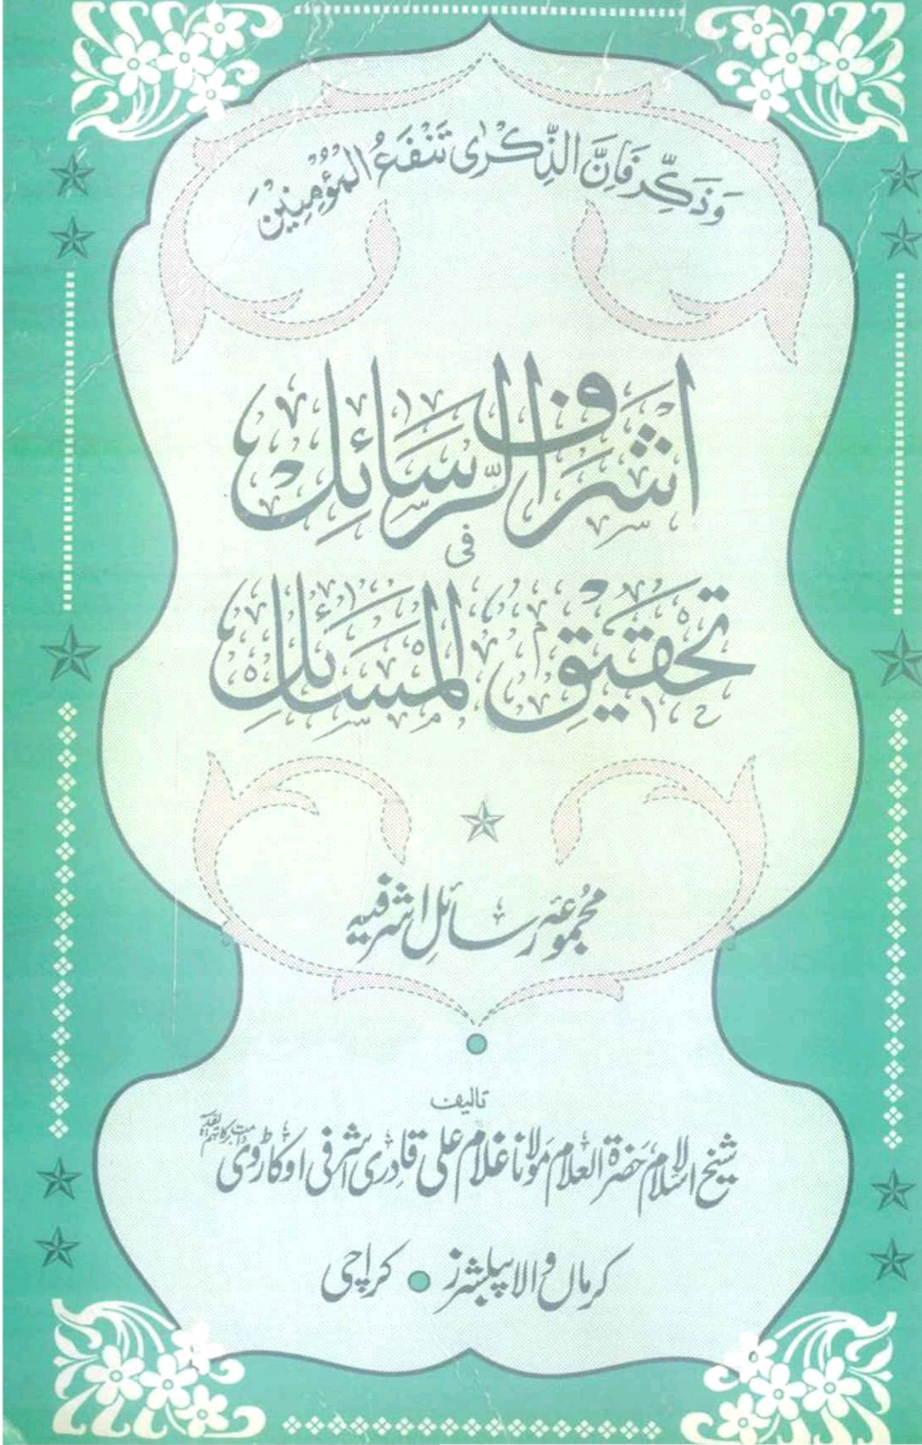 وَذَكِّرْ فَاِنَّ الذِّكْرٰى تَنْفَعُ الْمُؤْمِنِيْنَ
اَشْرَفُ الرَّسَائِلْ
فی
تَحْقِيْقِ الْمَسَائِلْ
مجموعہ رسائل اشرفیہ
تالیف
شیخ الاسلام حضرۃ العلام مولانا غلام علی قادری اشرفی اوکاڑوی دامت برکاتہم
کرماں والا پبلشرز • کراچی